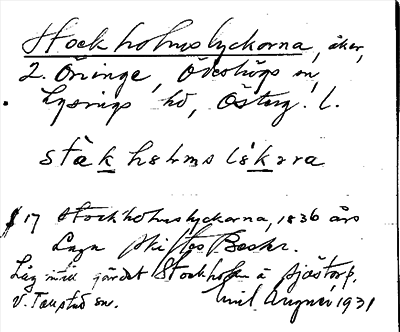 Stockholmslyckorna, åker,
2. Öninge, Ödeshögs sn,
Lysings hd, Östug. l.
ståkholmslékara
§ 17 Stockholmslyckorna, 1836 års
Laga skiftes Beskr.
Låg intill gärdet Stockholm å Sjöstorp,
V. Tollstad sn. Emil 1931